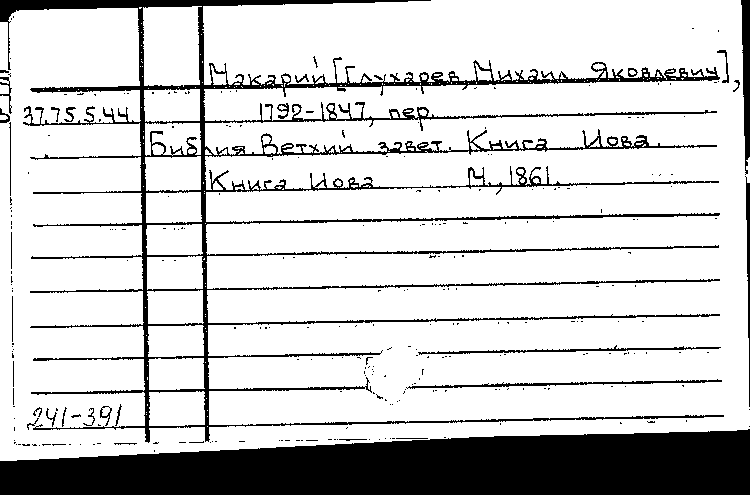 Макарий [Глухарев, Михаил Яковлевич],
37.75.5.44. 1792-1847, пер.
Библия. Ветхий завет. Книга Иова.
Книга Иова М., 1861.
241-391